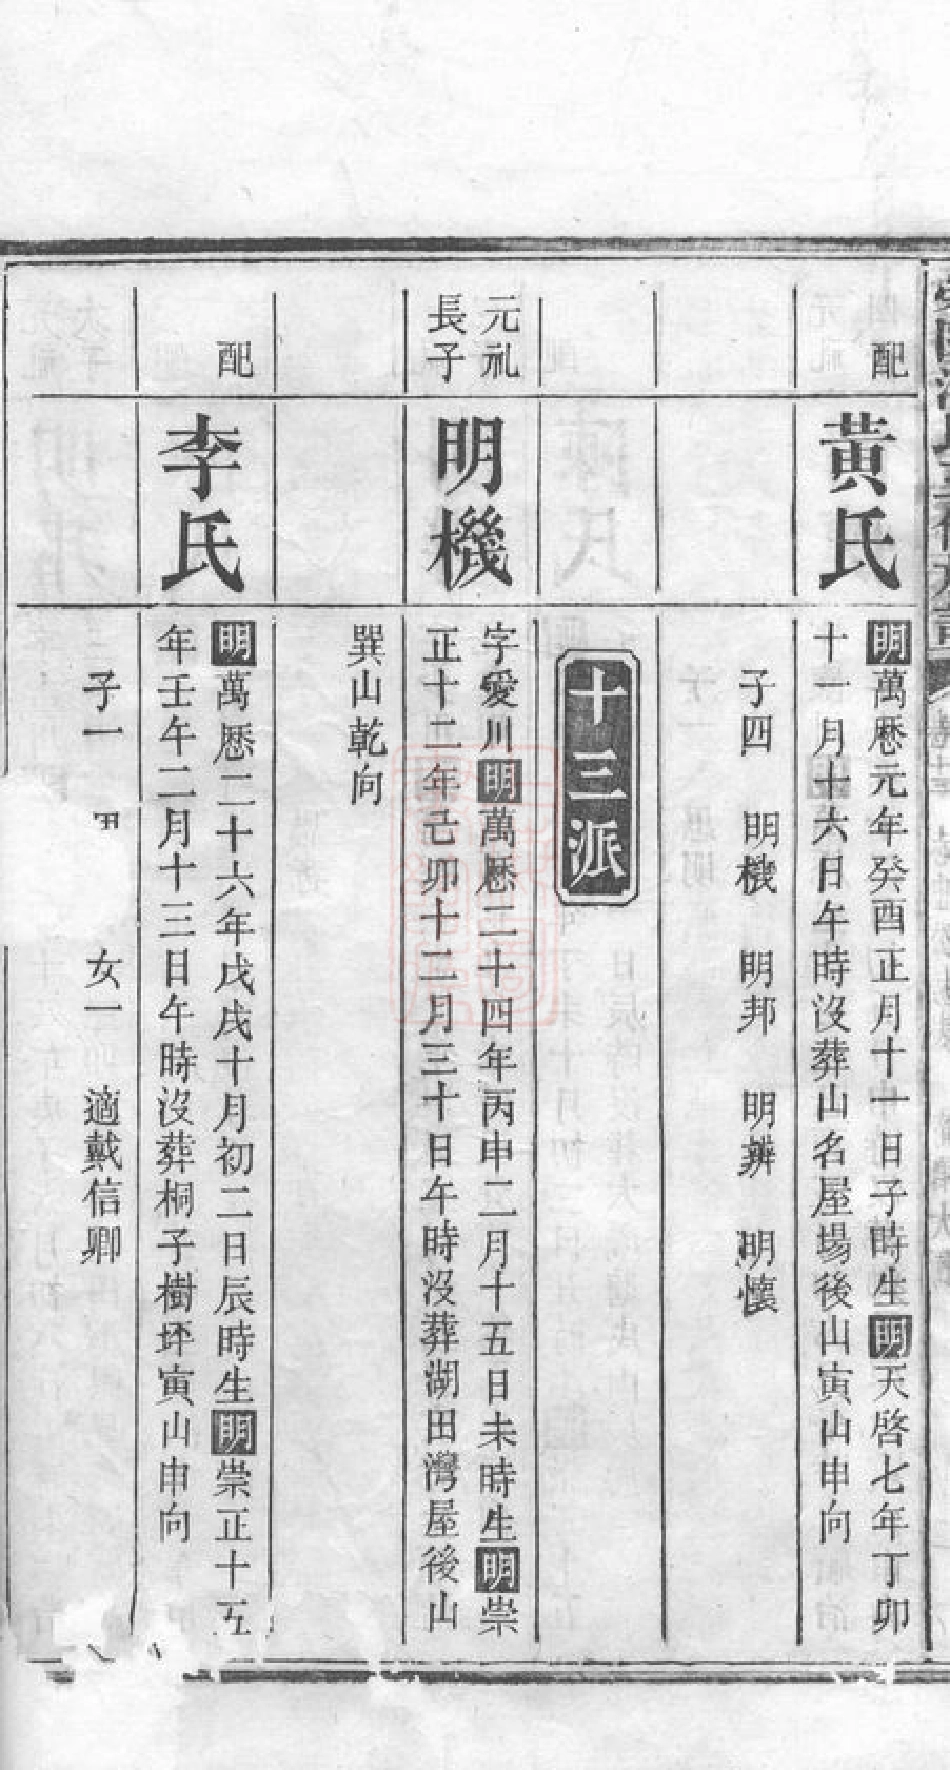 配
黃氏
明萬歷元年癸酉正月十一日子時生明天啓七年丁卯
十一月十六日午時沒葬山名屋場後山寅山申向
子四 明機 明邦 明辨 明懷
十三派
元礼
長子
明機
字愛川明萬歷二十四年丙申二月十五日未時生明崇
正十二年己卯十二月三十日午時沒葬湖田灣屋後山
巽山乾向
配
李氏
明萬歷二十六年戊戌十月初二日辰時生明崇正十五
年壬午二月十三日午時沒葬桐子樹坪寅山申向
子一 女一 適戴信卿